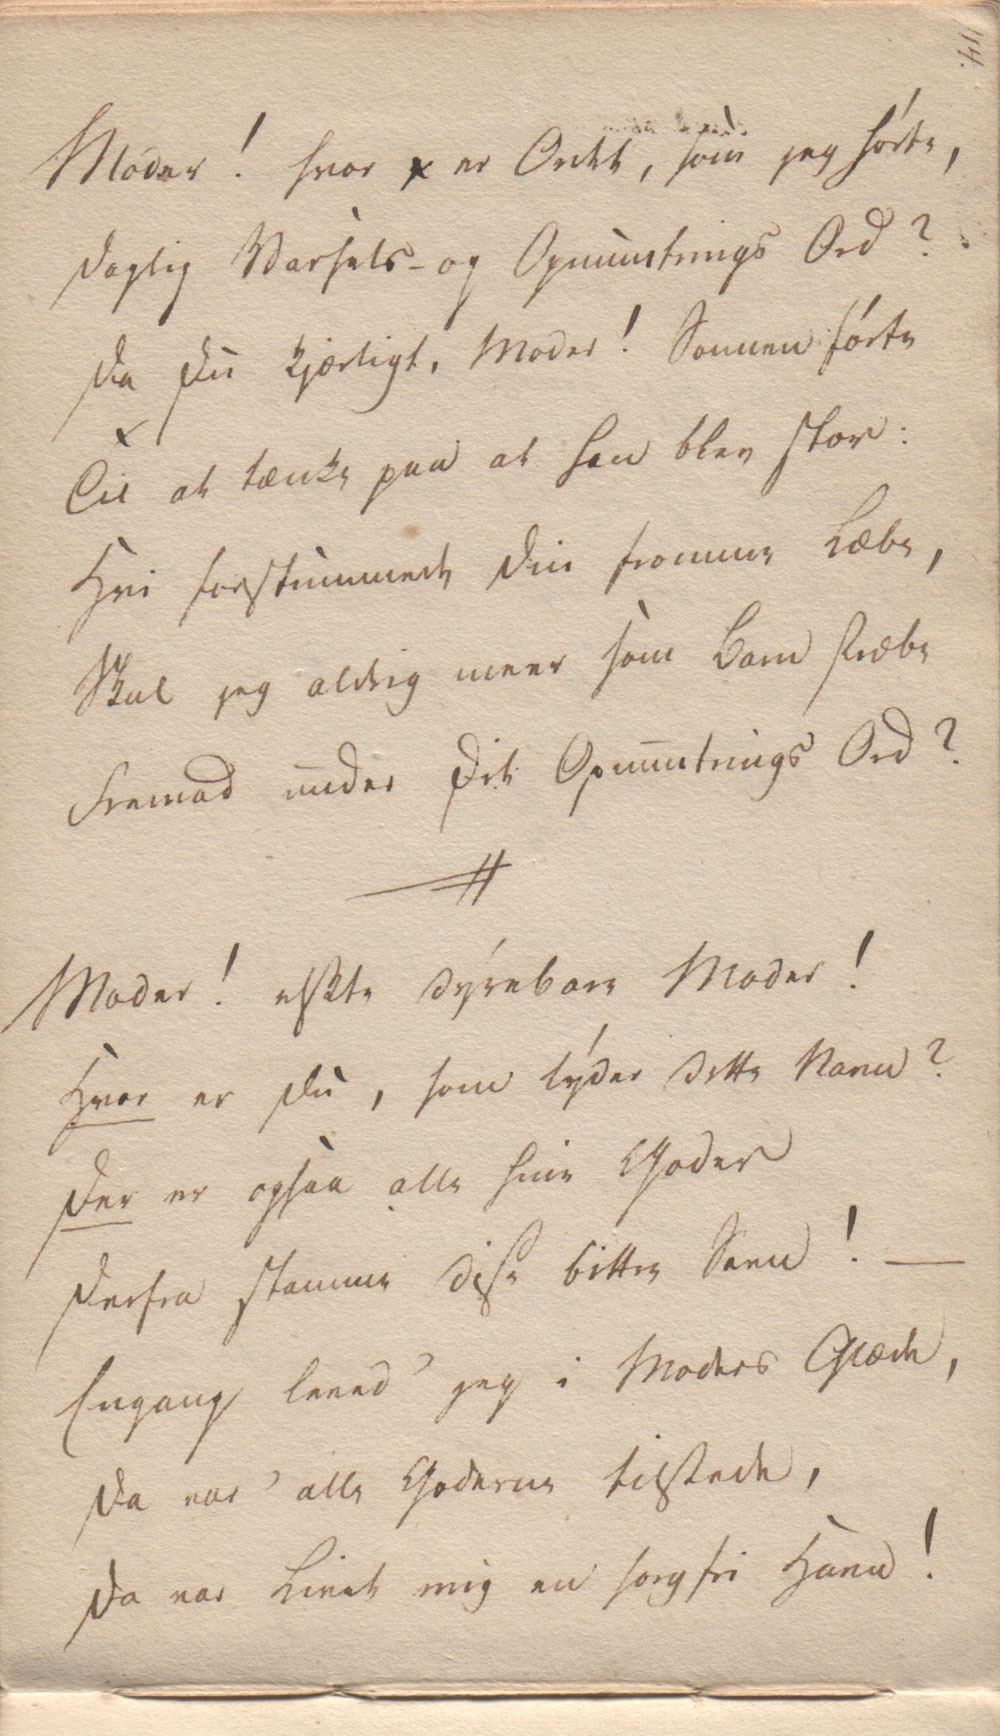 114.
Moder! hvor er Ordet, som jeg hørte,
Daglig Varsels- og Opmuntrings Ord?
Da Du kjærligt, Moder! Sønnen førte
Til at tænke paa at han blev stor:
Hvi forstummede Din fromme Læbe,
Skal jeg aldrig meer som Barn stræbe
Fremad under Dit Opmuntrings Ord?
Moder! elskte dyrebare Moder!
Hvor er Du, som lyder dette Navn?
Der er ogsaa alle sine Goder
Derfra stamme disse bittre Savn! —
Engang leved' jeg i Moders Glæde,
Da var alle Goderne tilstede,
Da var Livet mig en sorgfri Havn!